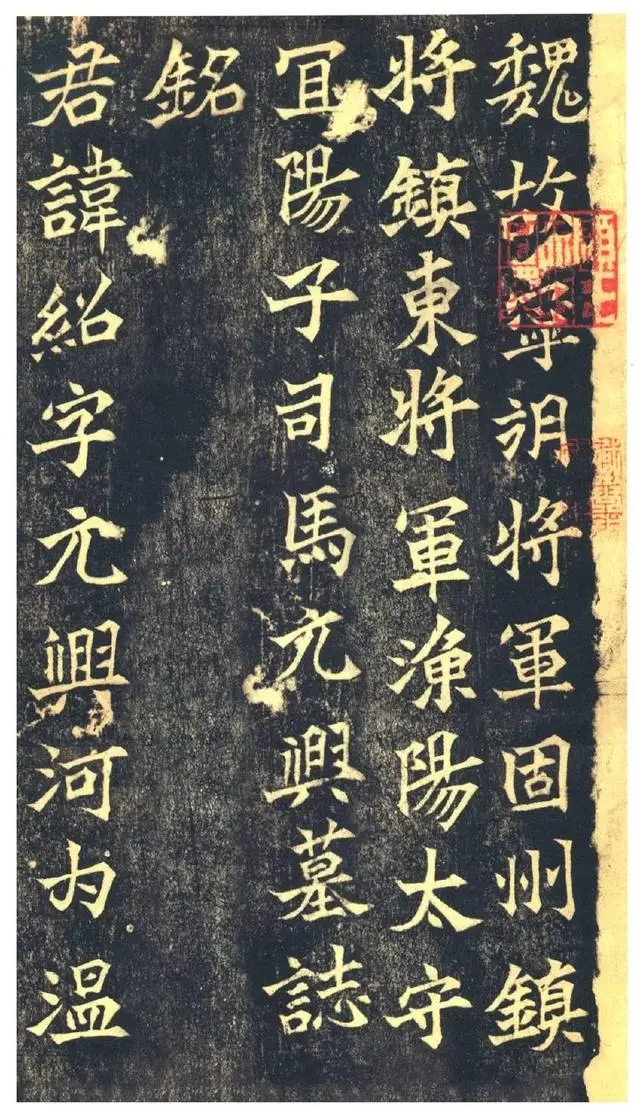 魏故寧朔將軍固州鎮
將鎮東將軍漁陽太守
宜陽子司馬元興墓誌
銘
君諱紹字元興河内温